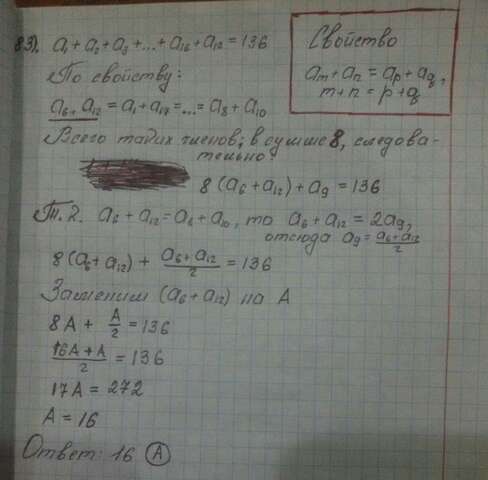 83). a₁ + a₂ + a₃ + ... + a₁₆ + a₁₇ = 136
Свойство
aₘ + aₙ = aₚ + a_q,
m + n = p + q
По свойству:
a₆ + a₁₂ = a₁ + a₁₇ = ... = a₈ + a₁₀
Всего таких членов, в сумме 8, следова-
тельно:
8(a₆ + a₁₂) + a₉ = 136
Т. к. a₆ + a₁₂ = a₈ + a₁₀, то a₆ + a₁₂ = 2a₉,
отсюда a₉ = (a₆ + a₁₂)/2
8(a₆ + a₁₂) + (a₆ + a₁₂)/2 = 136
Заменим (a₆ + a₁₂) на A
8A + A/2 = 136
(16A + A)/2 = 136
17A = 272
A = 16
Ответ: 16 (A)